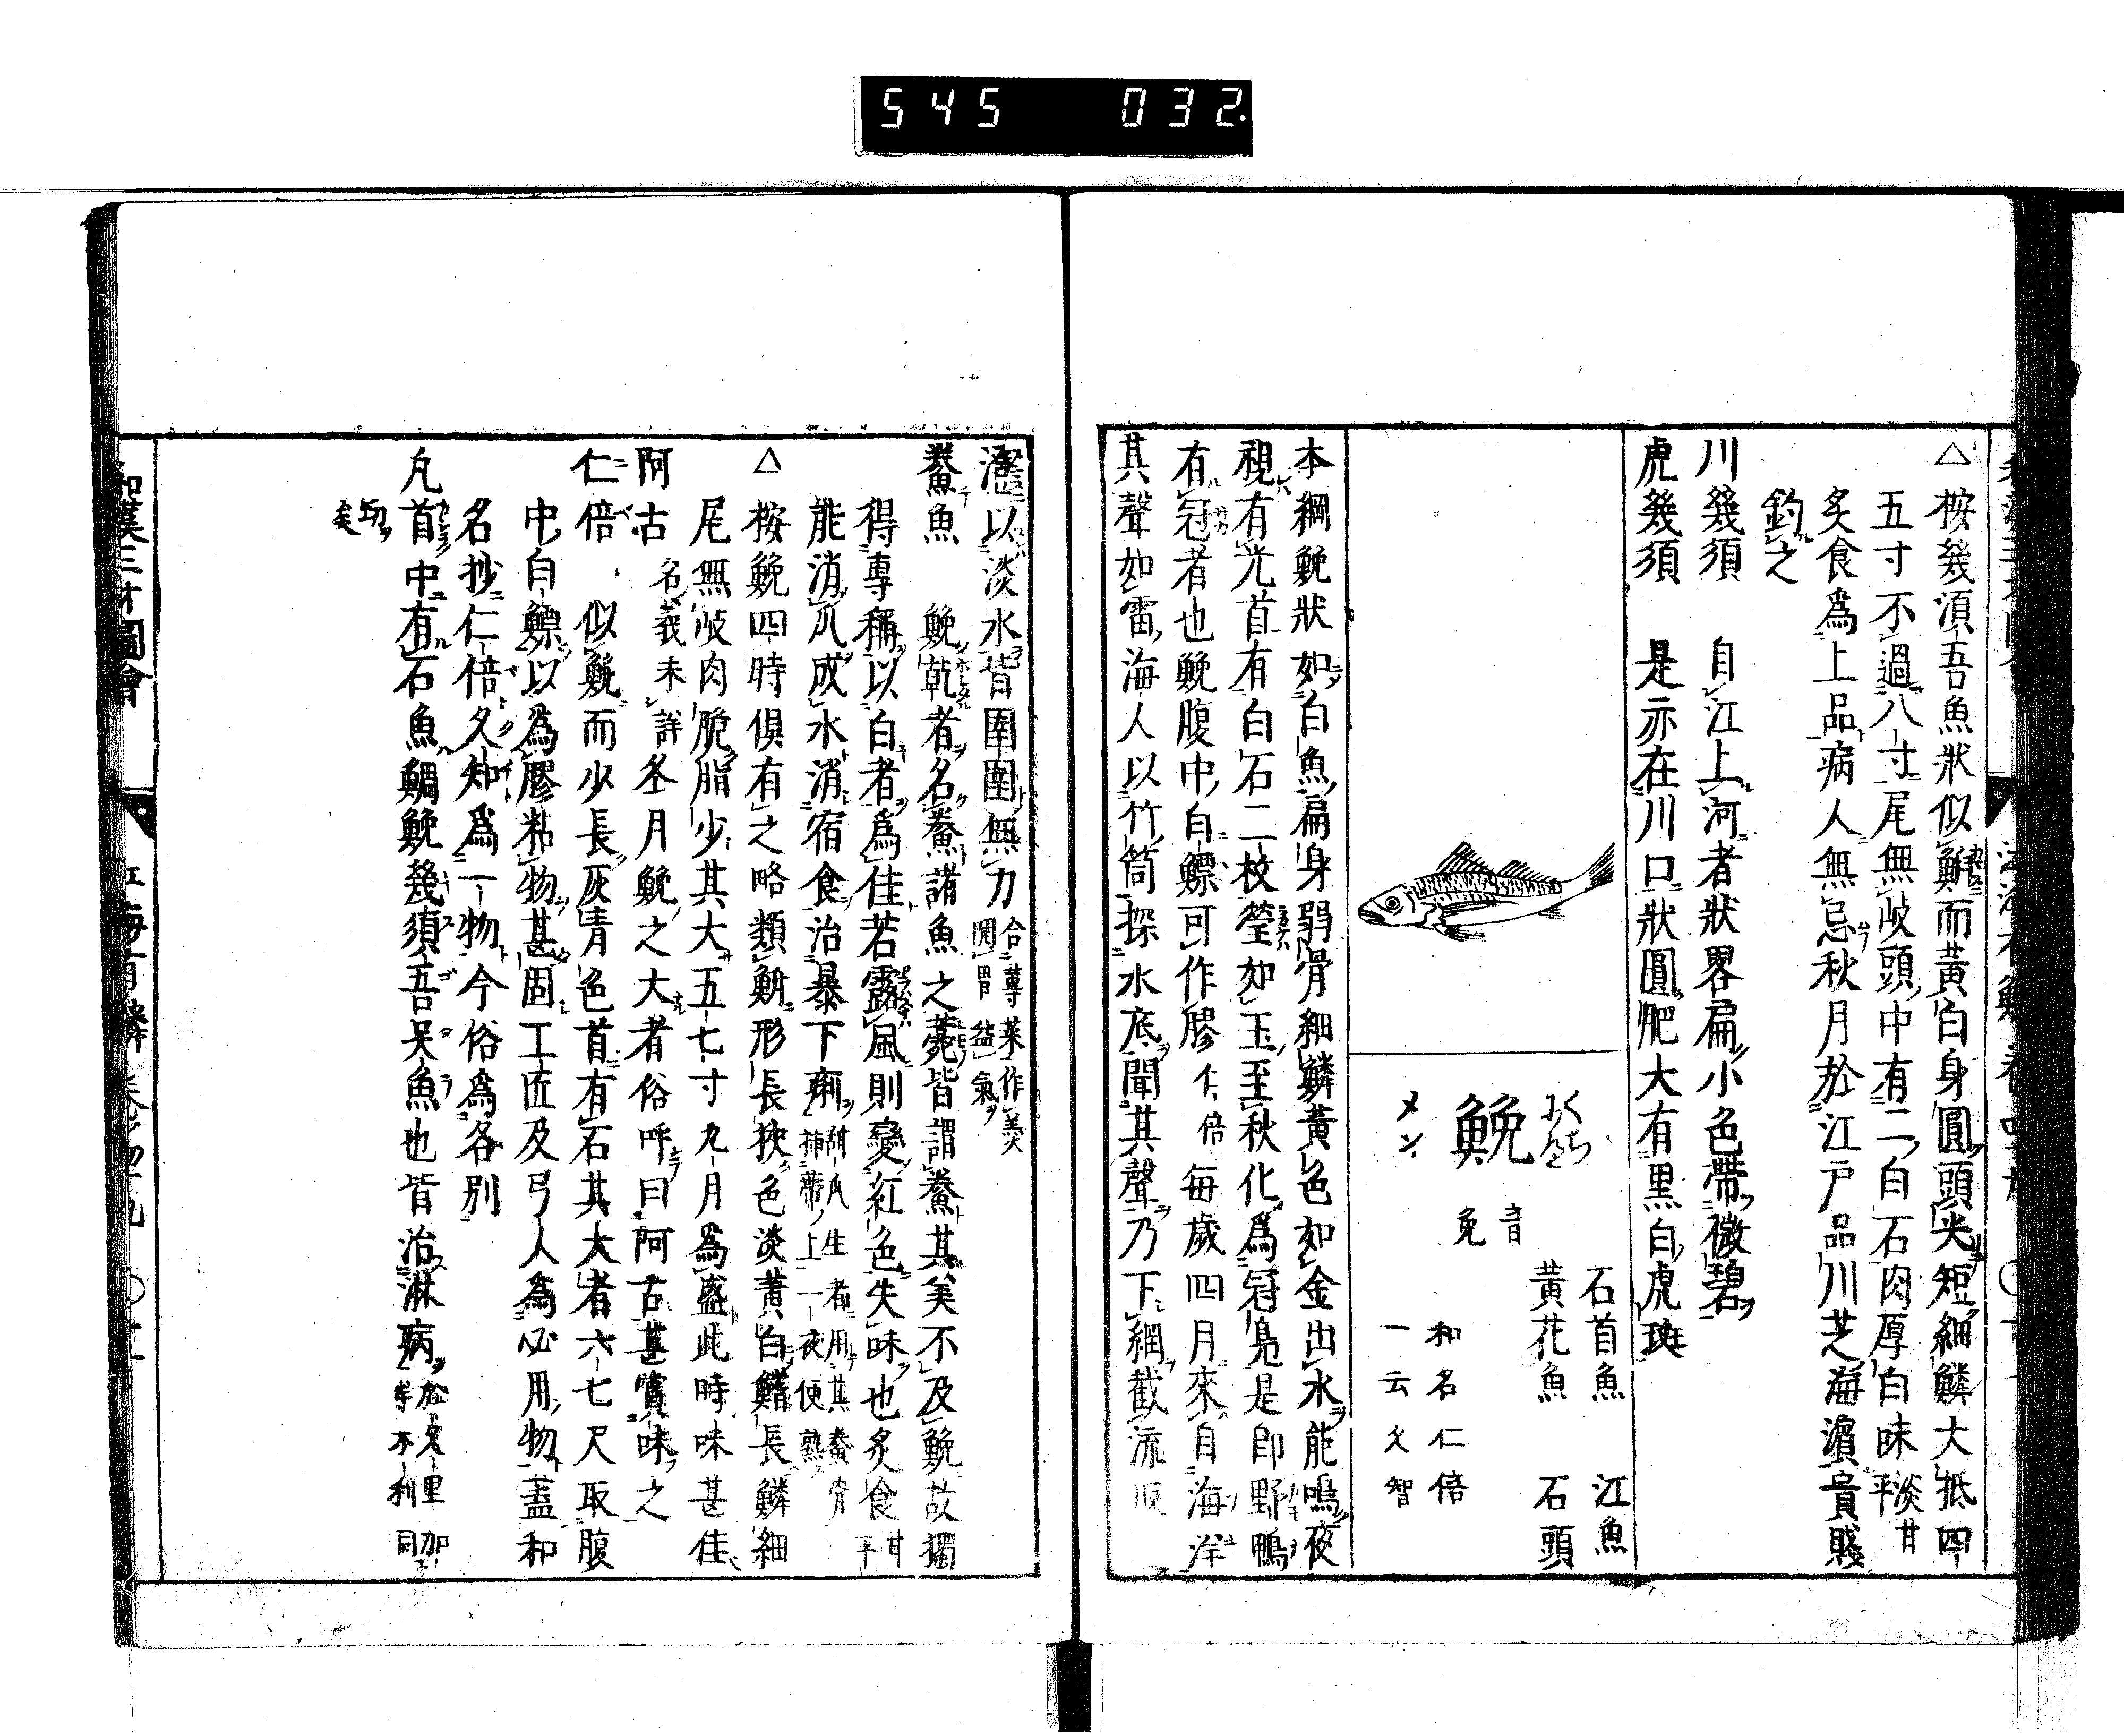 545 032.
△按幾須吾魚狀似鮒而黃白身圓頭尖短細鱗大抵四
五寸不過八寸尾無岐頭中有二白石肉厚白味淡甘平
炙食爲上品病人無忌秋月於江戸品川芝海濵貴賤
釣之
川幾須 自江上河者狀畧扁小色帶微碧
虎幾須 是亦在川口狀圓肥大有黒白虎斑
くち
鮸
メン
音免
石首魚 江魚
黃花魚 石頭
和名仁倍
一云久智
本綱鮸狀如白魚扁身弱骨細鱗黃色如金出水能鳴夜
視有光首有白石二枚瑩如玉至秋化爲冠鳧是即野鴨
有冠者也鮸腹中白鰾可作膠仁倍每歲四月來自海洋
其聲如雷海人以竹筒探水底聞其聲乃下網截流取
潑以淡水皆圉圉無力合蓴菜作羹開胃益氣
鯗魚 鮸乾者名鯗諸魚之薧皆謂鯗其美不及鮸故獨
得專稱以白者爲佳若露風則變紅色失味也炙食甘平
能消瓜成水消宿食治暴下痢甜瓜生者用其鯗骨挿蔕上一夜便熟
△按鮸四時俱有之略類鮒形長狹色淡黃白鰭長鱗細
尾無岐肉脆脂少其大五七寸九月爲盛此時味甚佳
阿古名義未詳 冬月鮸之大者俗呼曰阿古甚賞味之
仁倍 似鮸而少長灰青色首有石其大者六七尺取腹
中白鰾以爲膠粘物甚固工匠及弓人爲必用物蓋和
名抄仁倍久知爲一物今俗爲各別
凡首中有石魚鯛鮸幾須吾吴魚也皆治淋病
和漢三才圖會 江海有鱗 卷四十九